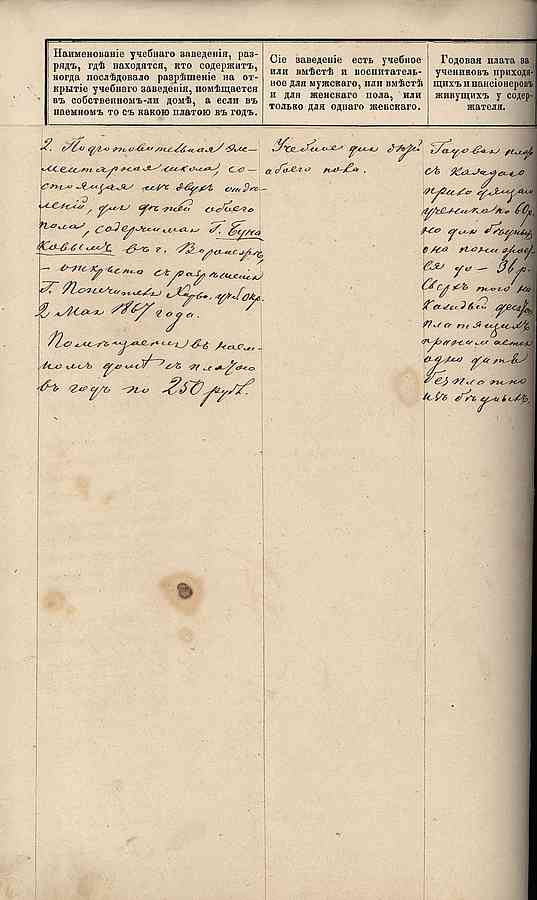 Наименованіе учебнаго заведенія, раз-
рядъ, гдѣ находятся, кто содержитъ,
когда послѣдовало разрѣшеніе на от-
крытіе учебнаго заведенія, помѣщается
въ собственномъ-ли домѣ, а если въ
наемномъ то съ какою платою въ годъ.
Сіе заведеніе есть учебное
или вмѣстѣ и воспитатель-
ное для мужскаго, или вмѣстѣ
и для женскаго пола, или
только для однаго женскаго.
Годовая плата за
учениковъ приходя-
щихъ и пансіонеровъ
живущихъ у содер-
жателя.
2. Подготовительная эле-
ментарная школа, со-
стоящая изъ двухъ отдѣ-
леній, для дѣтей обоего
пола, содержимая Г. Буна
ковымъ въ г. Воронежѣ,
– открыто съ разрѣшенія
Г. Попечителя Харьк. учеб. окр.
2 Мая 1867 года.
Помѣщается въ наем-
номъ домѣ съ платою
въ годъ по 250 рубл.
Учебное для дѣтей
обоего пола.
Годовая плат
съ каждаго
приходящаго
ученика по 60 р.
но для бѣдныхъ
она понижает
ся до – 36 р.
Сверхъ того на
каждый десят
платящихъ
принимается
одно дитя
безплатно
изъ бѣдныхъ.